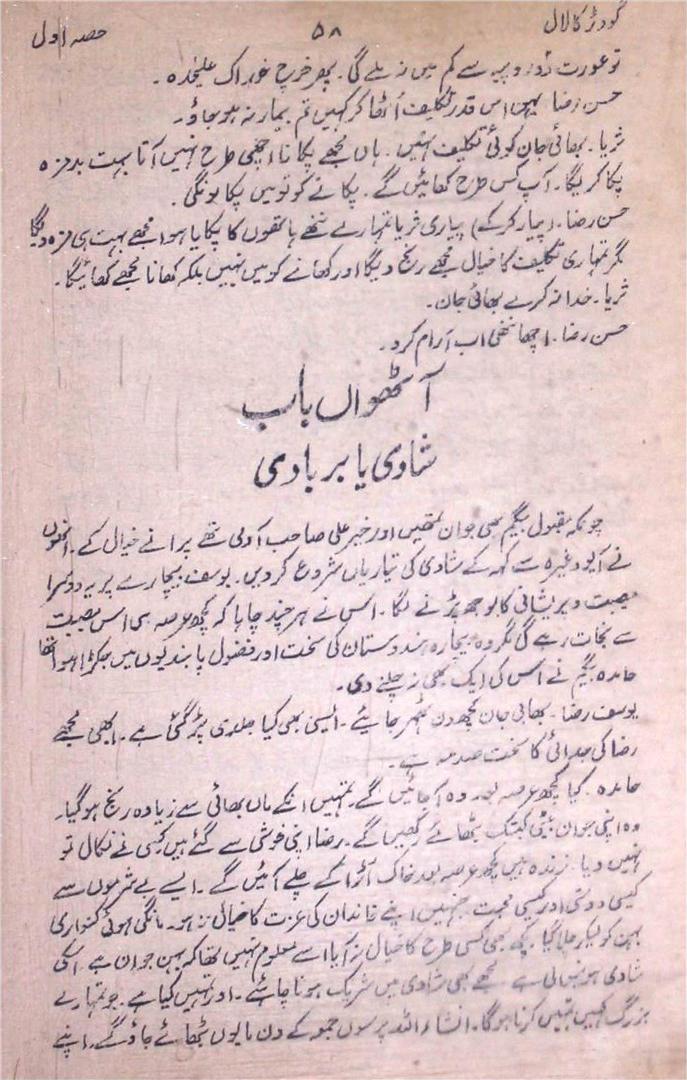 گودڑ کا لال
۵۸
حصہ اول
تو عورت دو روپیہ سے کم میں نہ ملے گی۔ پھر خرچ خوراک علیٰحدہ۔
حسن رضا۔ بہن اس قدر تکلیف اُٹھا کر کہیں تم بیمار نہ ہو جاؤ۔
ثریا۔ بھائی جان کوئی تکلیف نہیں۔ ہاں مجھے پکانا اچھی طرح نہیں آتا بہت بدمزہ
پکا کریگا۔ آپ کس طرح کھائیں گے۔ پکانے کو تو میں پکا ہونگی۔
حسن رضا۔ (پیار کرکے) پیاری ثریا تمہارے ننھے ہاتھوں کا پکایا ہوا مجھے بہت ہی مزہ دیگا
مگر تمہاری تکلیف کا خیال مجھے رنج دیگا اور کھانے کو میں نہیں بلکہ کھانا مجھے کھائیگا۔
ثریا۔ خدا نہ کرے بھائی جان۔
حسن رضا۔ اچھا ننھی اب آرام کرو۔
آٹھواں باب
شادی یا بربادی
چونکہ مقبول بیگم بھی جوان تھیں اور خیر علی صاحب آدمی تھے پرانے خیال کے۔ انھوں
نے آپو وغیرہ سے کہہ کے شادی کی تیاریاں شروع کر دیں۔ یوسف بیچارے پر یہ دوسرا
مصیبت و پریشانی کا بوجھ پڑنے لگا۔ اس نے ہر چند چاہا کہ کچھ عرصہ ہی اس مصیبت
سے نجات رہے گی مگر وہ بیچارہ ہندوستان کی سخت اور فضول پابندیوں میں جکڑا ہوا تھا
حامدہ بیگم نے اس کی ایک بھی نہ چلنے دی۔
یوسف رضا۔ بھابی جان کچھ دن ٹھہر جائیے۔ ایسی بھی کیا جلدی پڑ گئی ہے۔ ابھی مجھے
رضا کی جدائی کا سخت صدمہ ہے۔
حامدہ۔ کیا کچھ عرصہ بعد وہ آ جائیں گے۔ تمہیں انکے ماں بھائی سے زیادہ رنج ہو گیا۔
وہ اپنی جوان بیٹی کبتک بٹھائے رکھیں گے۔ رضا اپنی خوشی سے گئے ہیں کسی نے نکال تو
نہیں دیا۔ زندہ ہیں کچھ عرصہ بعد خاک اُڑا کے چلے آئیں گے۔ ایسے بے شرموں سے
کیسی دوستی اور کیسی محبت جنہیں اپنے خاندان کی عزت کا خیال نہ ہو۔ مانگی ہوئی کنواری
بہن کو لیکر چلا گیا۔ کچھ بھی کسی طرح کا خیال نہ آیا اسے معلوم نہیں تھا کہ بہن جوان ہے اسکی
شادی ہونیوالی ہے مجھے بھی شادی میں شریک ہونا چاہئے۔ اور تمہیں کیا ہے۔ جو تمہارے
بزرگ کہیں تمہیں کرنا ہوگا۔ انشاء اللہ پرسوں جمعہ کے دن مایوں بٹھائے جاؤ گے۔ اپنے